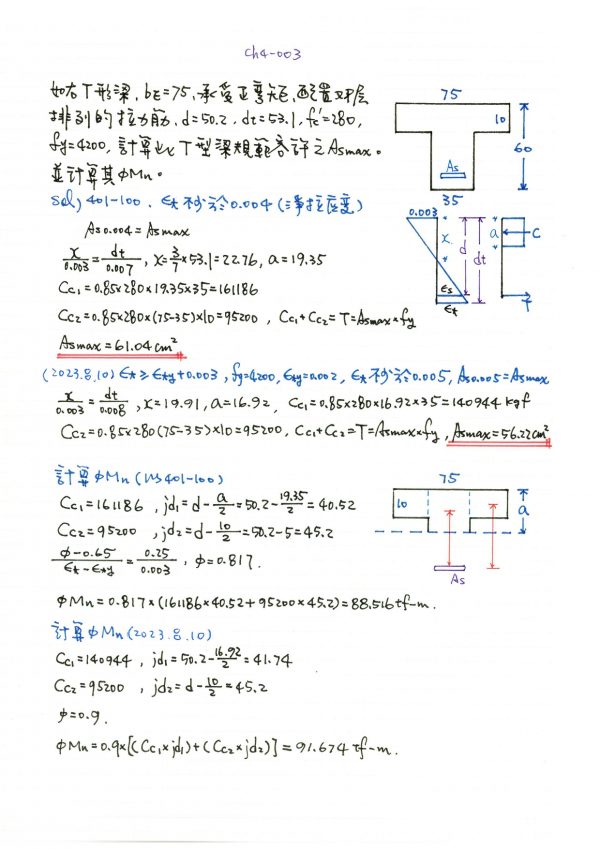 ch4-003
如右T形梁,bE=75,承受正彎矩,配置雙層
排列的拉力筋,d=50.2,dt=53.1,fc'=280,
fy=4200,計算此T型梁規範容許之Asmax。
並計算其φMn。
75
10
60
As
35
sol) 401-100. εt不少於0.004(淨拉應變)
As0.004=Asmax
x/0.003=dt/0.007, x=3/7×53.1=22.76, a=19.35
Cc1=0.85×280×19.35×35=161186
Cc2=0.85×280×(75-35)×10=95200, Cc1+Cc2=T=Asmax×fy
Asmax=61.04cm²
0.003
x
d
dt
a
C
εs
εt
T
(2023.8.10) εt≥εty+0.003, fy=4200, εty=0.002, εt不少於0.005, As0.005=Asmax
x/0.003=dt/0.008, x=19.91, a=16.92, Cc1=0.85×280×16.92×35=140944 kgf
Cc2=0.85×280(75-35)×10=95200, Cc1+Cc2=T=Asmax×fy, Asmax=56.22cm²
計算φMn(401-100)
Cc1=161186, jd1=d-a/2=50.2-19.35/2=40.52
Cc2=95200, jd2=d-10/2=50.2-5=45.2
φ-0.65/εt-εty=0.25/0.003, φ=0.817.
φMn=0.817×(161186×40.52+95200×45.2)=88.516tf-m.
75
10
a
As
計算φMn(2023.8.10)
Cc1=140944, jd1=50.2-16.92/2=41.74
Cc2=95200, jd2=d-10/2=45.2
φ=0.9.
φMn=0.9×[(Cc1×jd1)+(Cc2×jd2)]=91.674tf-m.